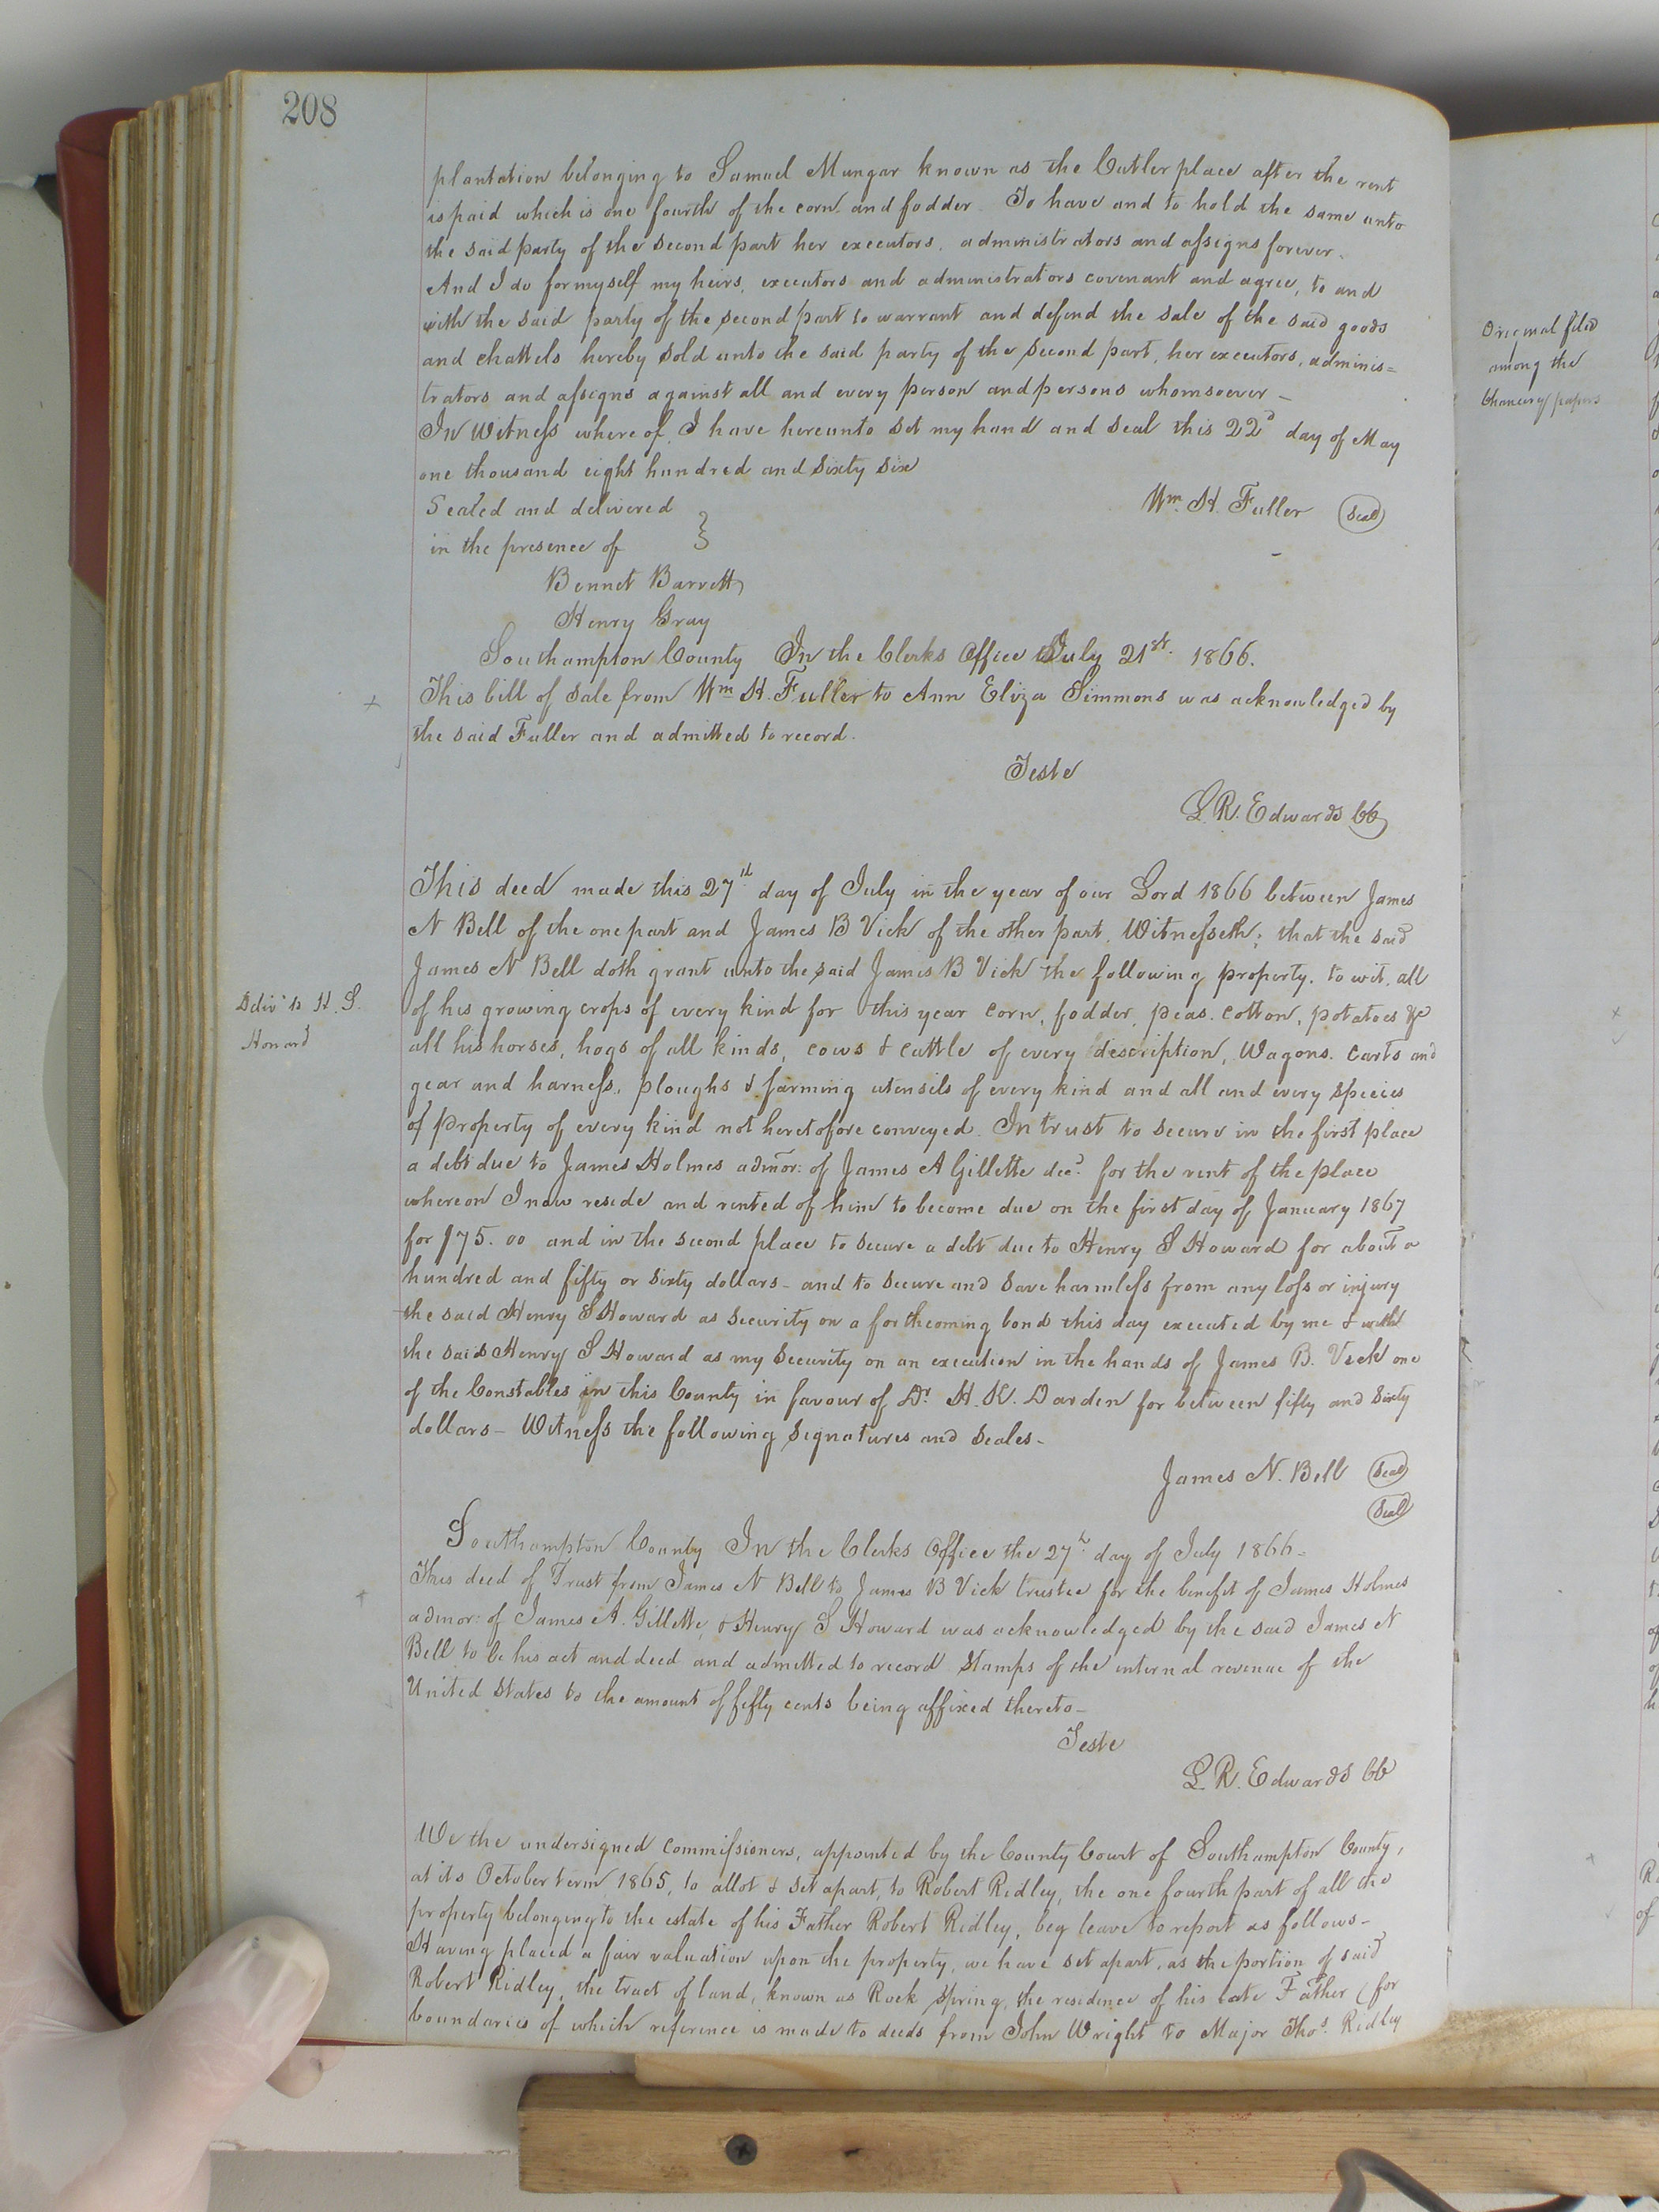 208
plantation belonging to Samuel Mungar known as the Cutler place after the rent
is paid which is one fourth of the corn and fodder. To have and to hold the same unto
the said party of the second part her executors, administrators and assigns forever.
And I do for myself my heirs, executors and administrators covenant and agree, to and
with the said party of the second part to warrant and defend the sale of the said goods
and chattels hereby sold unto the said party of the second part, her executors, adminis=
trators and assigns against all and every person and persons whomsoever -
In Witness whereof, I have hereunto set my hand and seal this 22d day of May
one thousand eight hundred and sixty six
Sealed and delivered
Wm. H. Fuller (Seal)
in the presence of
Bennet Barrett
Henry Gray
Southampton County In the Clerks Office July 21st. 1866.
This bill of sale from Wm H. Fuller to Ann Eliza Simmons was acknowledged by
the said Fuller and admitted to record.
Teste
L. R. Edwards CC
This deed made this 27th day of July in the year of our Lord 1866 between James
N Bell of the one part and James B Vick of the other part, Witnesseth; that the said
James N Bell doth grant unto the said James B Vick the following property, to wit, all
of his growing crops of every kind for this year corn, fodder, peas, cotton, potatoes &c
all his horses, hogs of all kinds, cows & cattle of every description, Wagons, Carts and
gear and harness, ploughs & farming utensils of every kind and all and every species
of property of every kind not heretofore conveyed. In trust to secure in the first place
a debt due to James Holmes admor: of James A Gillette decd. for the rent of the place
whereon I now reside and rented of him to become due on the first day of January 1867
for $75.00 and in the second place to secure a debt due to Henry S Howard for about a
hundred and fifty or sixty dollars - and to secure and save harmless from any loss or injury
the said Henry S Howard as security on a forthcoming bond this day executed by me & with
the said Henry S Howard as my security on an execution in the hands of James B. Vick one
of the Constables in this County in favour of Dr. H. K. Darden for between fifty and sixty
dollars - Witness the following signatures and seales -
James N. Bell (Seal)
(Seal)
Deliv to H. S.
Howard
Southampton County In the Clerks Office the 27th day of July 1866 -
This deed of Trust from James N Bell to James B Vick trustee for the benefit of James Holmes
admor: of James A. Gillette, & Henry S Howard was acknowledged by the said James N
Bell to be his act and deed and admitted to record Stamps of the internal revenue of the
United States to the amount of fifty cents being affixed thereto -
Teste
L. R. Edwards CC
We the undersigned Commissioners, appointed by the County Court of Southampton County,
at its October term 1865, to allot & set apart, to Robert Ridley, the one fourth part of all the
property belonging to the estate of his Father Robert Ridley, beg leave to report as follows -
Having placed a fair valuation upon the property, we have set apart, as the portion of said
Robert Ridley, the tract of land, known as Rock Spring, the residence of his late Father (for
boundaries of which reference is made to deeds from John Wright to Major Thos. Ridley
Original filed
among the
Chancery papers